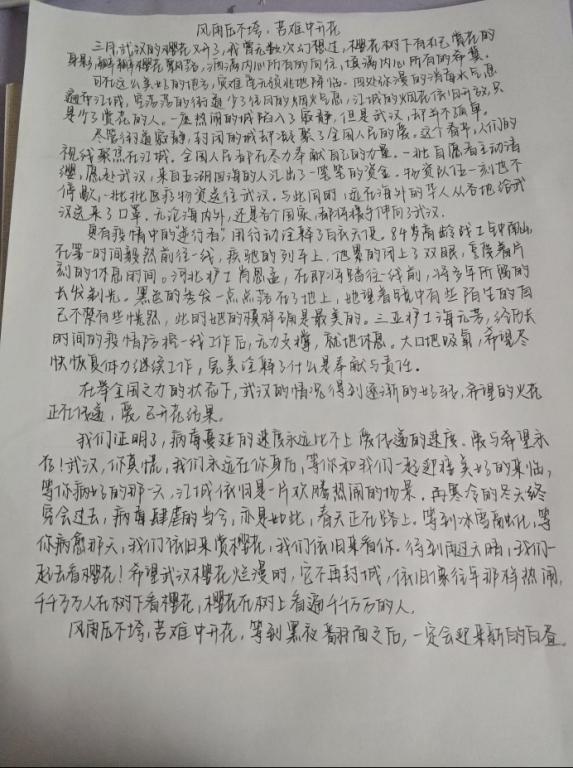 风雨压不垮，苦难中开花
三月，武汉的樱花又开了，我曾无数次幻想过，樱花树下有自己赏花的
身影，翩翩樱花飘落，洒满内心所有的向往，填满内心所有的希冀。
可在这么美好的地方，灾难毫无预兆地降临。四处弥漫的消毒水气息
遍布江城，空荡荡的街道少了往日的烟火气息，江城的烟花依旧开放，只
是少了赏花的人。一座热闹的城陷入了寂静，但是武汉，却并不孤单。
尽管街道寂静，封闭的城却凝聚了全国人民的爱。这个春节，人们的
视线聚焦在江城。全国人民都在尽力奉献自己的力量。一批自愿者主动请
缨，愿赴武汉，来自五湖四海的人汇出了一笔笔的资金。物资队伍一刻也不
停歇，一批批医疗物资送往武汉。与此同时，远在海外的华人从各地给武
汉送来了口罩。无论海内外，还是各个国家，都将援手伸向了武汉。
具有疫情中的"逆行者"用行动诠释了白衣天使。84岁高龄战士钟南山
在第一时间毅然前往一线，疾驰的列车上，他累的闭上了双眼，享受着片
刻的休息时间。河北护士肖思孟，在即将踏往一线前，将多年所留的
长发剃光。黑色的秀发一点点落在了地上，她望着镜中有些陌生的自
己不禁有些恍惚，此时她的模样确是最美的。三亚护士海元芳，经历长
时间的疫情防控一线工作后，无力支撑，就地休息。大口地吸氧，希望尽
快恢复体力继续工作，完美诠释了什么是奉献与责任。
在举全国之力的状态下，武汉的情况得到逐渐的好转，希望的火花
正在传递，爱已开花结果。
我们证明了，病毒蔓延的速度永远比不上爱传递的速度。爱与希望永
存！武汉，你莫慌，我们永远在你身后，等你和我们一起迎接美好的来临，
等你病好的那一天，江城依旧是一片欢腾热闹的场景。再寒冷的冬天终
究会过去，病毒肆虐的当今，亦是如此，春天正在路上。等到冰雪融化，等
你病愈那天，我们依旧来赏樱花，我们依旧来看你。待到雨过天晴，我们一
起去看樱花！希望武汉樱花烂漫时，它不再封城，依旧像往年那样热闹，
千千万万人在树下看樱花，樱花在树上看遍千千万万的人。
风雨压不垮，苦难中开花，等到黑夜翻面之后，一定会迎来新的白昼。